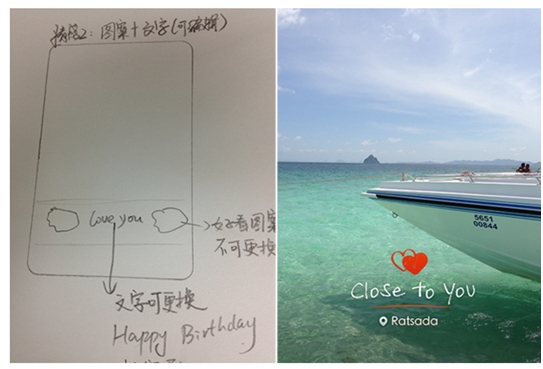 模板2：图案+文字(可编辑)
love you
好看图案
不可更换
文字可更换
Happy Birthday
5651
00844
Close to You
Ratsada